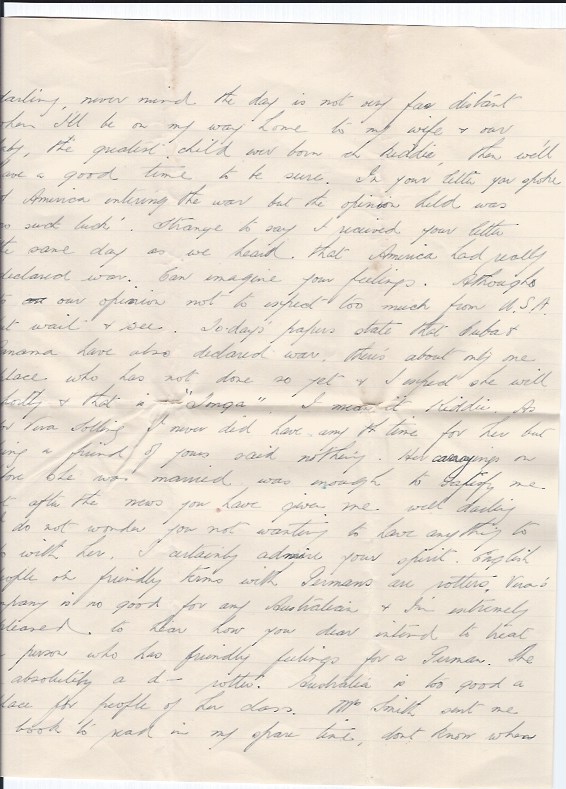 darling, never mind the day is not very far distant
when I'll be on my way home to my wife & our
baby, the greatest child ever born eh Kiddie, then we'll
have a good time to be sure. In your letter you spoke
of America entering the war but the opinion held was
no such luck'. Strange to say I received your letter
the same day as we heard that America had really
declared war. Can imagine your feelings. Although
our opinion not to expect too much from U.S.A.
wait & see. To-days papers state that Cuba &
Panama have also declared war. Theres about only one
place who has not done so yet & I expect she will
& that is "Tonga". I mean it Kiddie. As
for Vera I never did have any time for her but
being a friend of yours said nothing. Her carryings on
before she was married was enough to satisfy me
after the news you have given me. well darling
I do not wonder you not wanting to have anything to
do with her. I certainly admire your spirit. English
people on friendly terms with Germans are rotters. Vera's
company is no good for any Australian & I'm extremely
pleased to hear how you dear intend to treat
a person who has friendly feelings for a German. She
absolutely a d— rotter. Australia is too good a
place for people of her class. Mrs Smith sent me
book to read in my spare time, dont know when